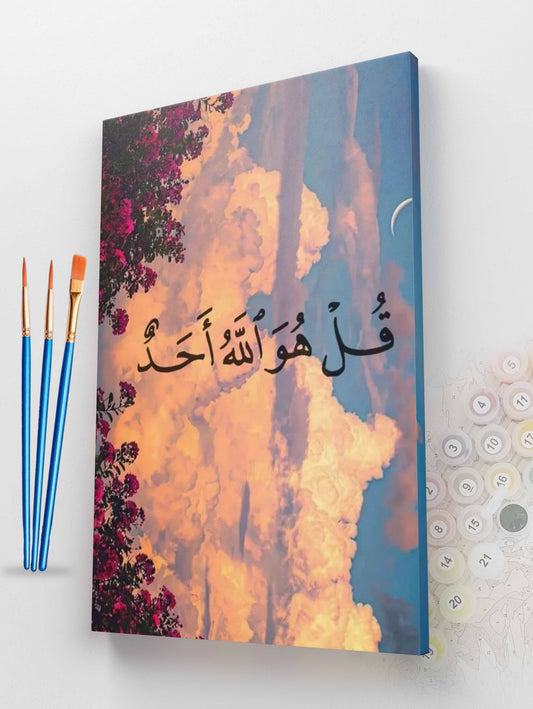 قُلْ هُوَ ٱللَّهُ أَحَدٌ
5
4 11
3 10 17
2 9 16
8 15
14 21
20
19